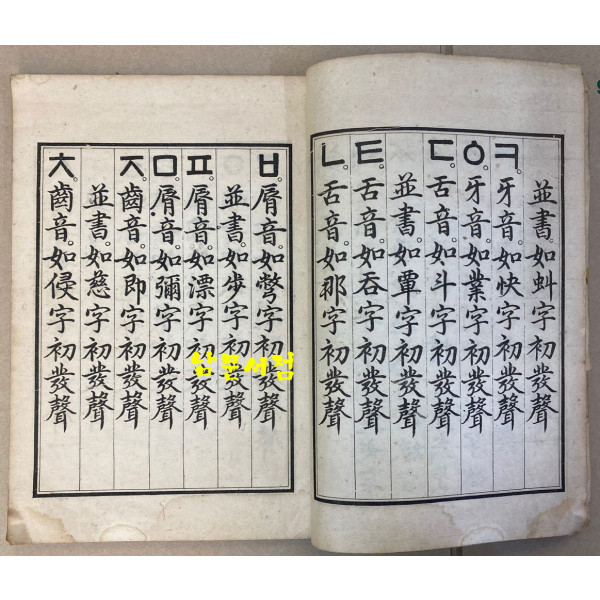 並書。如虯字初發聲
ㅋ。牙音。如快字初發聲
ㆁ。牙音。如業字初發聲
ㄷ。舌音。如斗字初發聲
並書。如覃字初發聲
ㅌ。舌音。如呑字初發聲
ㄴ。舌音。如那字初發聲
ㅂ。脣音。如彆字初發聲
並書。如步字初發聲
ㅍ。脣音。如漂字初發聲
ㅁ。脣音。如彌字初發聲
ㅈ。齒音。如即字初發聲
並書。如慈字初發聲
ㅊ。齒音。如侵字初發聲
남문서점